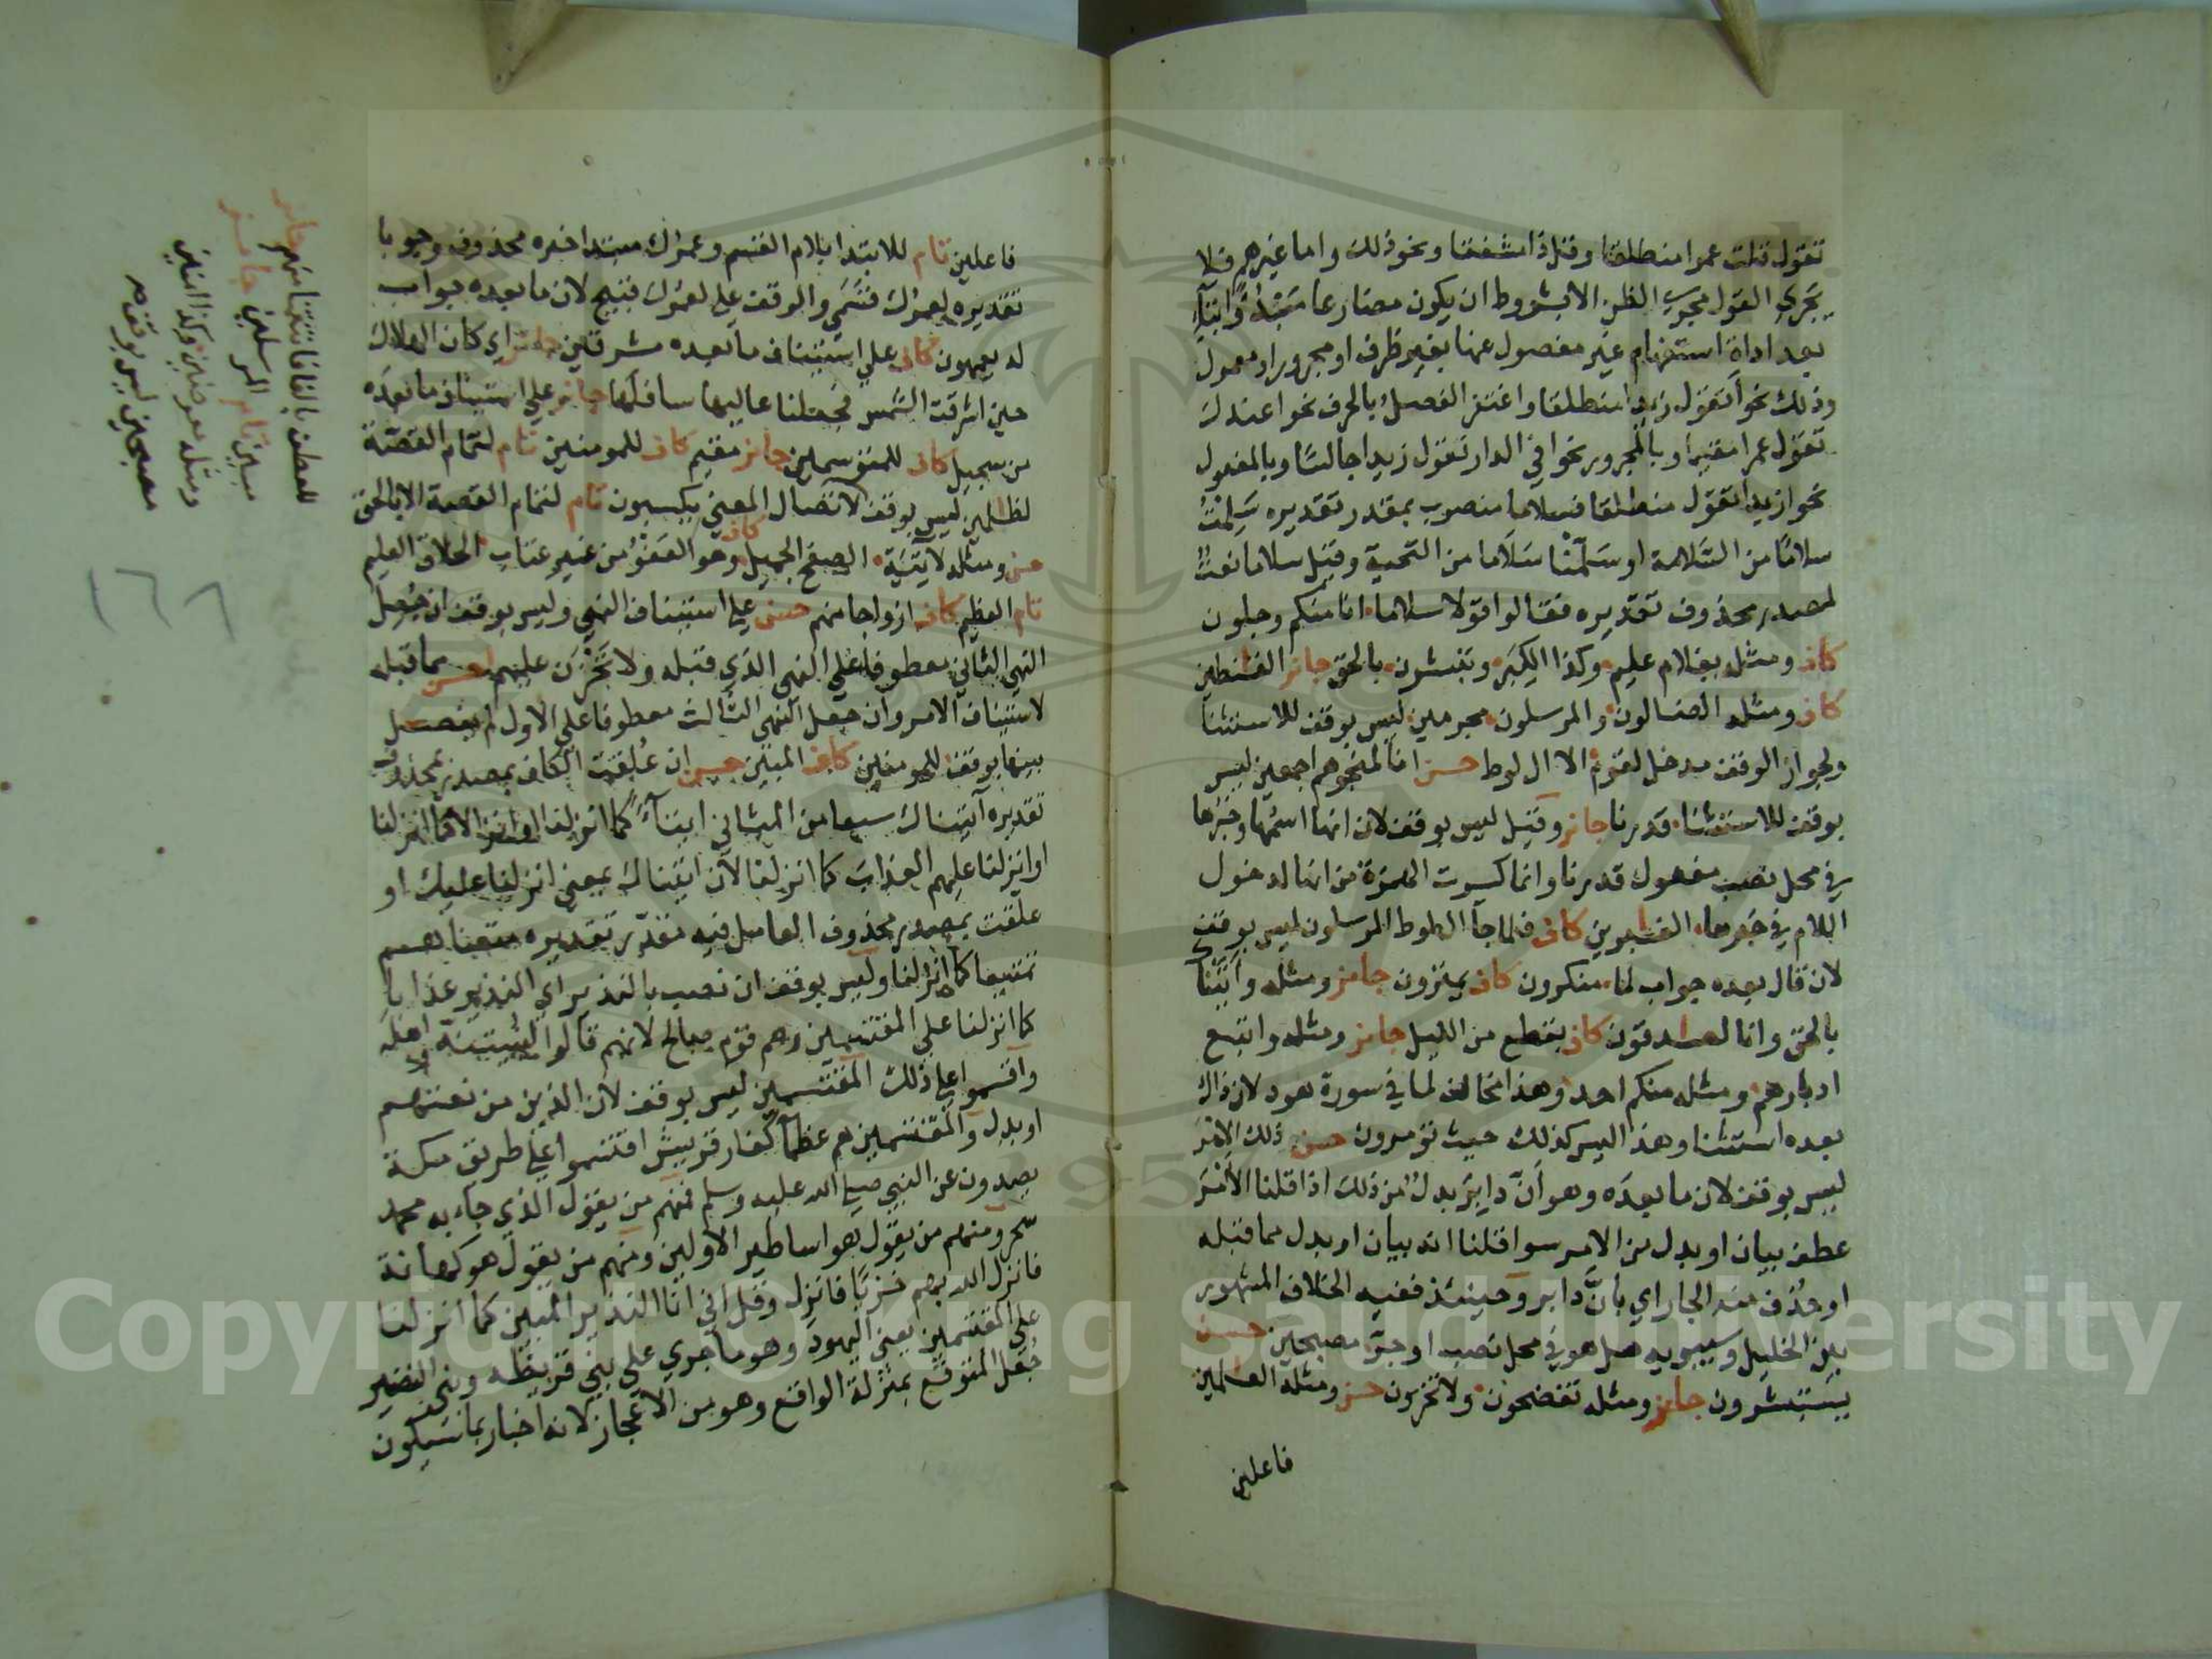 تقول قلت عمرا منطلقا وقيل ذا مشفقا ونحو ذلك واما غيرهم فلا
يجري القول مجرى الظن الا بشروط ان يكون مضارعا مبدوًّا بتآءٍ
بعد اداة استفهام غير مفصول عنها بغير ظرف او مجرور او معمول
وذلك نحو أتقول زيدا منطلقا واغتفر الفصل بالحرف نحو اعندك
تقول عمرا مقيما وبالمجرور نحو افي الدار تقول زيدا جالسًا وبالمفعول
نحو ازيدا تقول منطلقا فسلاما منصوب بمقدر تقديره سَلِمْتُ
سلامًا من السَّلامة او سَلَّمْنا سَلَاما من التحية وقيل سلاما نعت
لمصدر محذوف تقديره فقالوا قولا سلاما انا منكم وجلون
كاف ومثله بغلام عليم وكذا الكِبَر وتبشرون بالحق جائز القنطين
كاف ومثله الضالون والمرسلون مجرمين ليس بوقف للاستثنا
ولجواز الوقف مدخل لقوم الا ال لوط حسن انا لمنجوهم اجمعين ليس
بوقف للاستثنا قدرنا جائز وقيل ليس بوقف لان انها اسمها وخبرها
في محل نصب مفعول قدرنا وانما كسرت الهمزة من انها لدخول
اللام في خبرها الغابرين كاف فلما جآ ال لوط المرسلون ليس بوقف
لان قال بعده جواب لما منكرون كاف يمترون جائز ومثله وأتَيْنَا
بالحق وانا لصادقون كاف بقطع من الليل جائز ومثله واتبع
ادبارهم ومثله منكم احد وهذا مخالف لما في سورة هود لان ذاك
بعده استثنا وهذا ليس كذلك حيث تؤمرون حسن ذلك الامْرَ
ليس بوقف لان ما بعدَه وهو أنّ دابِرَ بدلٌ من ذلك اذا قلنا الأمْرَ
عطف بيان او بدل من الامر سوا قلنا انه بيان او بدل مما قبله
او حُذف منه الجار اي بأنَّ دابر وحينئذ ففيه الخلاف المشهور
بين الخليل وسيبويه هل هو في محل نصب او جرّ مصبحين حسن
يستبشرون جائز ومثله تفضحون ولا تخزون حسن ومثله العالمين
فاعلين
فاعلين تام للابتدا بلام القسم وعمرك مبتدا خبره محذوف وجوبا
تقديره لعمرك قسَمي والوقف على لعمرك قبيح لان ما بعده جواب
له يعمهون كاف على استئناف ما بعده مشرقين جائز اي كان الهلاك
حين اشرقت الشمس فجعلنا عاليها سافلها جائز على استيناف ما بعدَه
من سجيل كاف للمتوسمين جائز مقيم كاف للمومنين تام لتمام القصّة
لظالمين ليس بوقف لاتصال المعنى يكسبون تام لتمام القصة الا بالحق
حسن ومثله لآتِيَة الصفح الجميل كاف وهو العَفْوُ من غير عتاب الخلاق العليم
تام العظيم كاف ازواجا منهم حسن على استئناف النهي وليس بوقف ان جُعل
النهي الثاني معطوفا على النهي الذي قبله ولا تَحْزَن عليهم احسن مما قبله
لاستيناف الامر وان جعل النهي الثالث معطوفا على الاول لم يفصل
بينهما بوقف للمومنين كاف المبين حسن ان عُلقت الكاف بمصدر محذوف
تقديره آتيناك سبعا من المثاني ايتاءً كما انزلنا او انزالا كما انزلنا
او انزلنا عليهم العذاب كما انزلنا لان اتيناك بمعنى انزلنا عليك او
علقت بمصدر محذوف العامل فيه مقدّر تقديره متعناهم
تمتيعا كما انزلنا وليس بوقف ان نصب بالنذير اي النذير عذابا
كما انزلنا على المقتسمين وهم قوم صالح لانهم قالوا لنُبَيّتَنّه واهلَه
واقسموا على ذلك المقتسمين ليس بوقف لان الذين من نعتهم
او بدل والمقتسمين هم عظمآء كفار قريش اقتسموا على طريق مكة
يصدون عن النبي صلى الله عليه وسلم فمنهم من يقول الذي جاء به محمد
سحر ومنهم من يقول هو اساطير الاولين ومنهم من يقول هو كهانة
فانزل الله بهم خزيًا فانزل وقل اني انا النذير المبين كما انزلنا
على المقتسمين يعني اليهود وهو ما جرى على بني قريظه وبني النضير
جُعل المتوقع بمنزلة الواقع وهو من الاعجاز لانه اخبار بما سيكون
للعطف بالفا فانتقمنا منهم جائز
مبين تام المرسلين جائز
ومثله معرضين وكذا امنين
مصبحين ليس بوقف
١٦٦
Copyright © King Saud University
1957